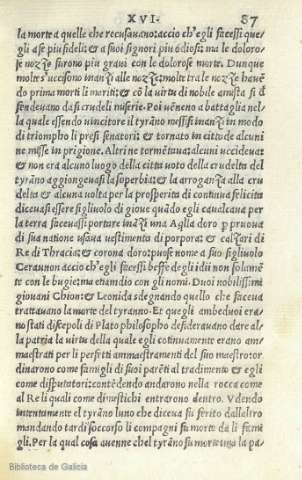 XVI. 87
la morte a quelle che recusauano: accio ch'egli facessi que
gli a se piu fideli: & a suoi signori piu odiosi: ma le doloro-
se nozze furono piu graui con le dolorose morte. Dunque
molte s'uccisono inanzi alle nozze: molte tra le nozze hauē
do prima morti li mariti: & cō la uirtu di nobile
fendeuano da si crudeli miserie. Poi uēneno a battaglia nel
la quale essendo uincitore il tyrāno messesi inanzi in modo
di triompho li presi senatori: & tornato in citta de alcuni
ne misse in prigione. Altri ne tormētaua: alcuni uccideua:
& non era alcuno luogo della citta uoto della crudelta del
tyrāno aggiongeuasi la superbia: & la arroganza alla cru
delta & alcuna uolta per la prosperita di continua felicita
diceuasi essere figliuolo di gioue quādo egli caualcaua per
la terra faceuassi portare inanzi una Aqila doro p pruoua
di sua natione usaua uestimenta di porpora: & calzari di
Re di Thracia: & corona doro: puose nome a suo figliuolo
Ceraunon accio ch'egli facessi beffe degli idii non solamē
te con le bugie: ma etiamdio con gli nomi. Duoi nobilissimi
giouani Chion: & Leonida sdegnando quello che faceua
trattauano la morte del tyranno. Et quegli ambeduoi era-
no stati discepoli di Plato philosopho desiderauano dare al-
la patria la uirtu della quale egli cotinuamente erano am-
maestrati per li perfetti ammaestramenti del suo maestro: or
dinarono come famigli di suoi parēti al tradimento & egli
come disputatori: contēdendo andarono nella rocca come
al Re li quali come dimestichi entrarono dentro. Vdendo
intentamente el tyrāno luno che diceua fu ferito dallaltro
mandando tardi soccorso li compagni fu morto da li fami
gli. Per la qual cosa auenne chel tyrāno fu morto: ma la pa-
Biblioteca de Galicia